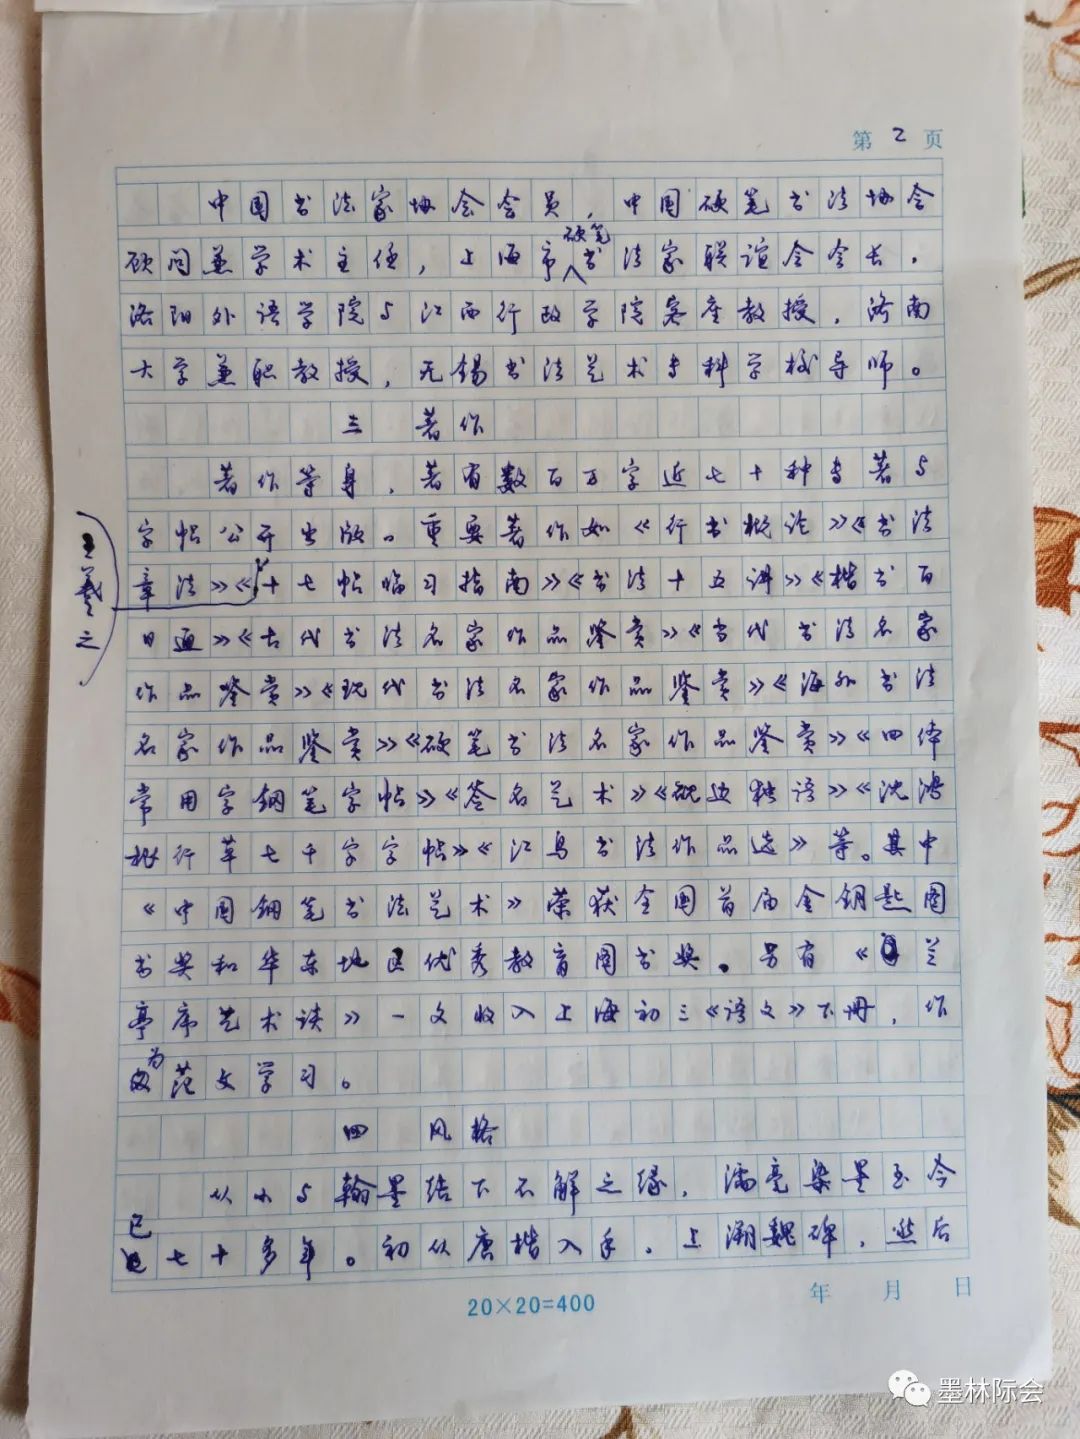 第 2 页
中国书法家协会会员，中国硬笔书法协会
顾问兼学术主任，上海市硬笔书法家联谊会会长，
洛阳外语学院与江西行政学院客座教授，济南
大学兼职教授，无锡书法艺术专科学校导师。
三 著作
著作等身，著有数百万字近七十种专著与
字帖公开出版。重要著作如《行书概论》《书法
章法》《王羲之十七帖临习指南》《书法十五讲》《楷书百
日通》《古代书法名家作品鉴赏》《当代书法名家
作品鉴赏》《现代书法名家作品鉴赏》《海外书法
名家作品鉴赏》《硬笔书法名家作品鉴赏》《四体
常用字钢笔字帖》《签名艺术》《砚边独语》《沈鸿
根行草七千字字帖》《江鸟书法作品选》等。其中
《中国钢笔书法艺术》荣获全国首届金钥匙图
书奖和华东地区优秀教育图书奖。另有《兰
亭序艺术谈》一文收入上海初三《语文》下册，作
为范文学习。
四 风格
从小与翰墨结下不解之缘，濡毫染墨至今
已七十多年。初从唐楷入手，上溯魏碑，然后
20×20=400
年 月 日
墨林际会